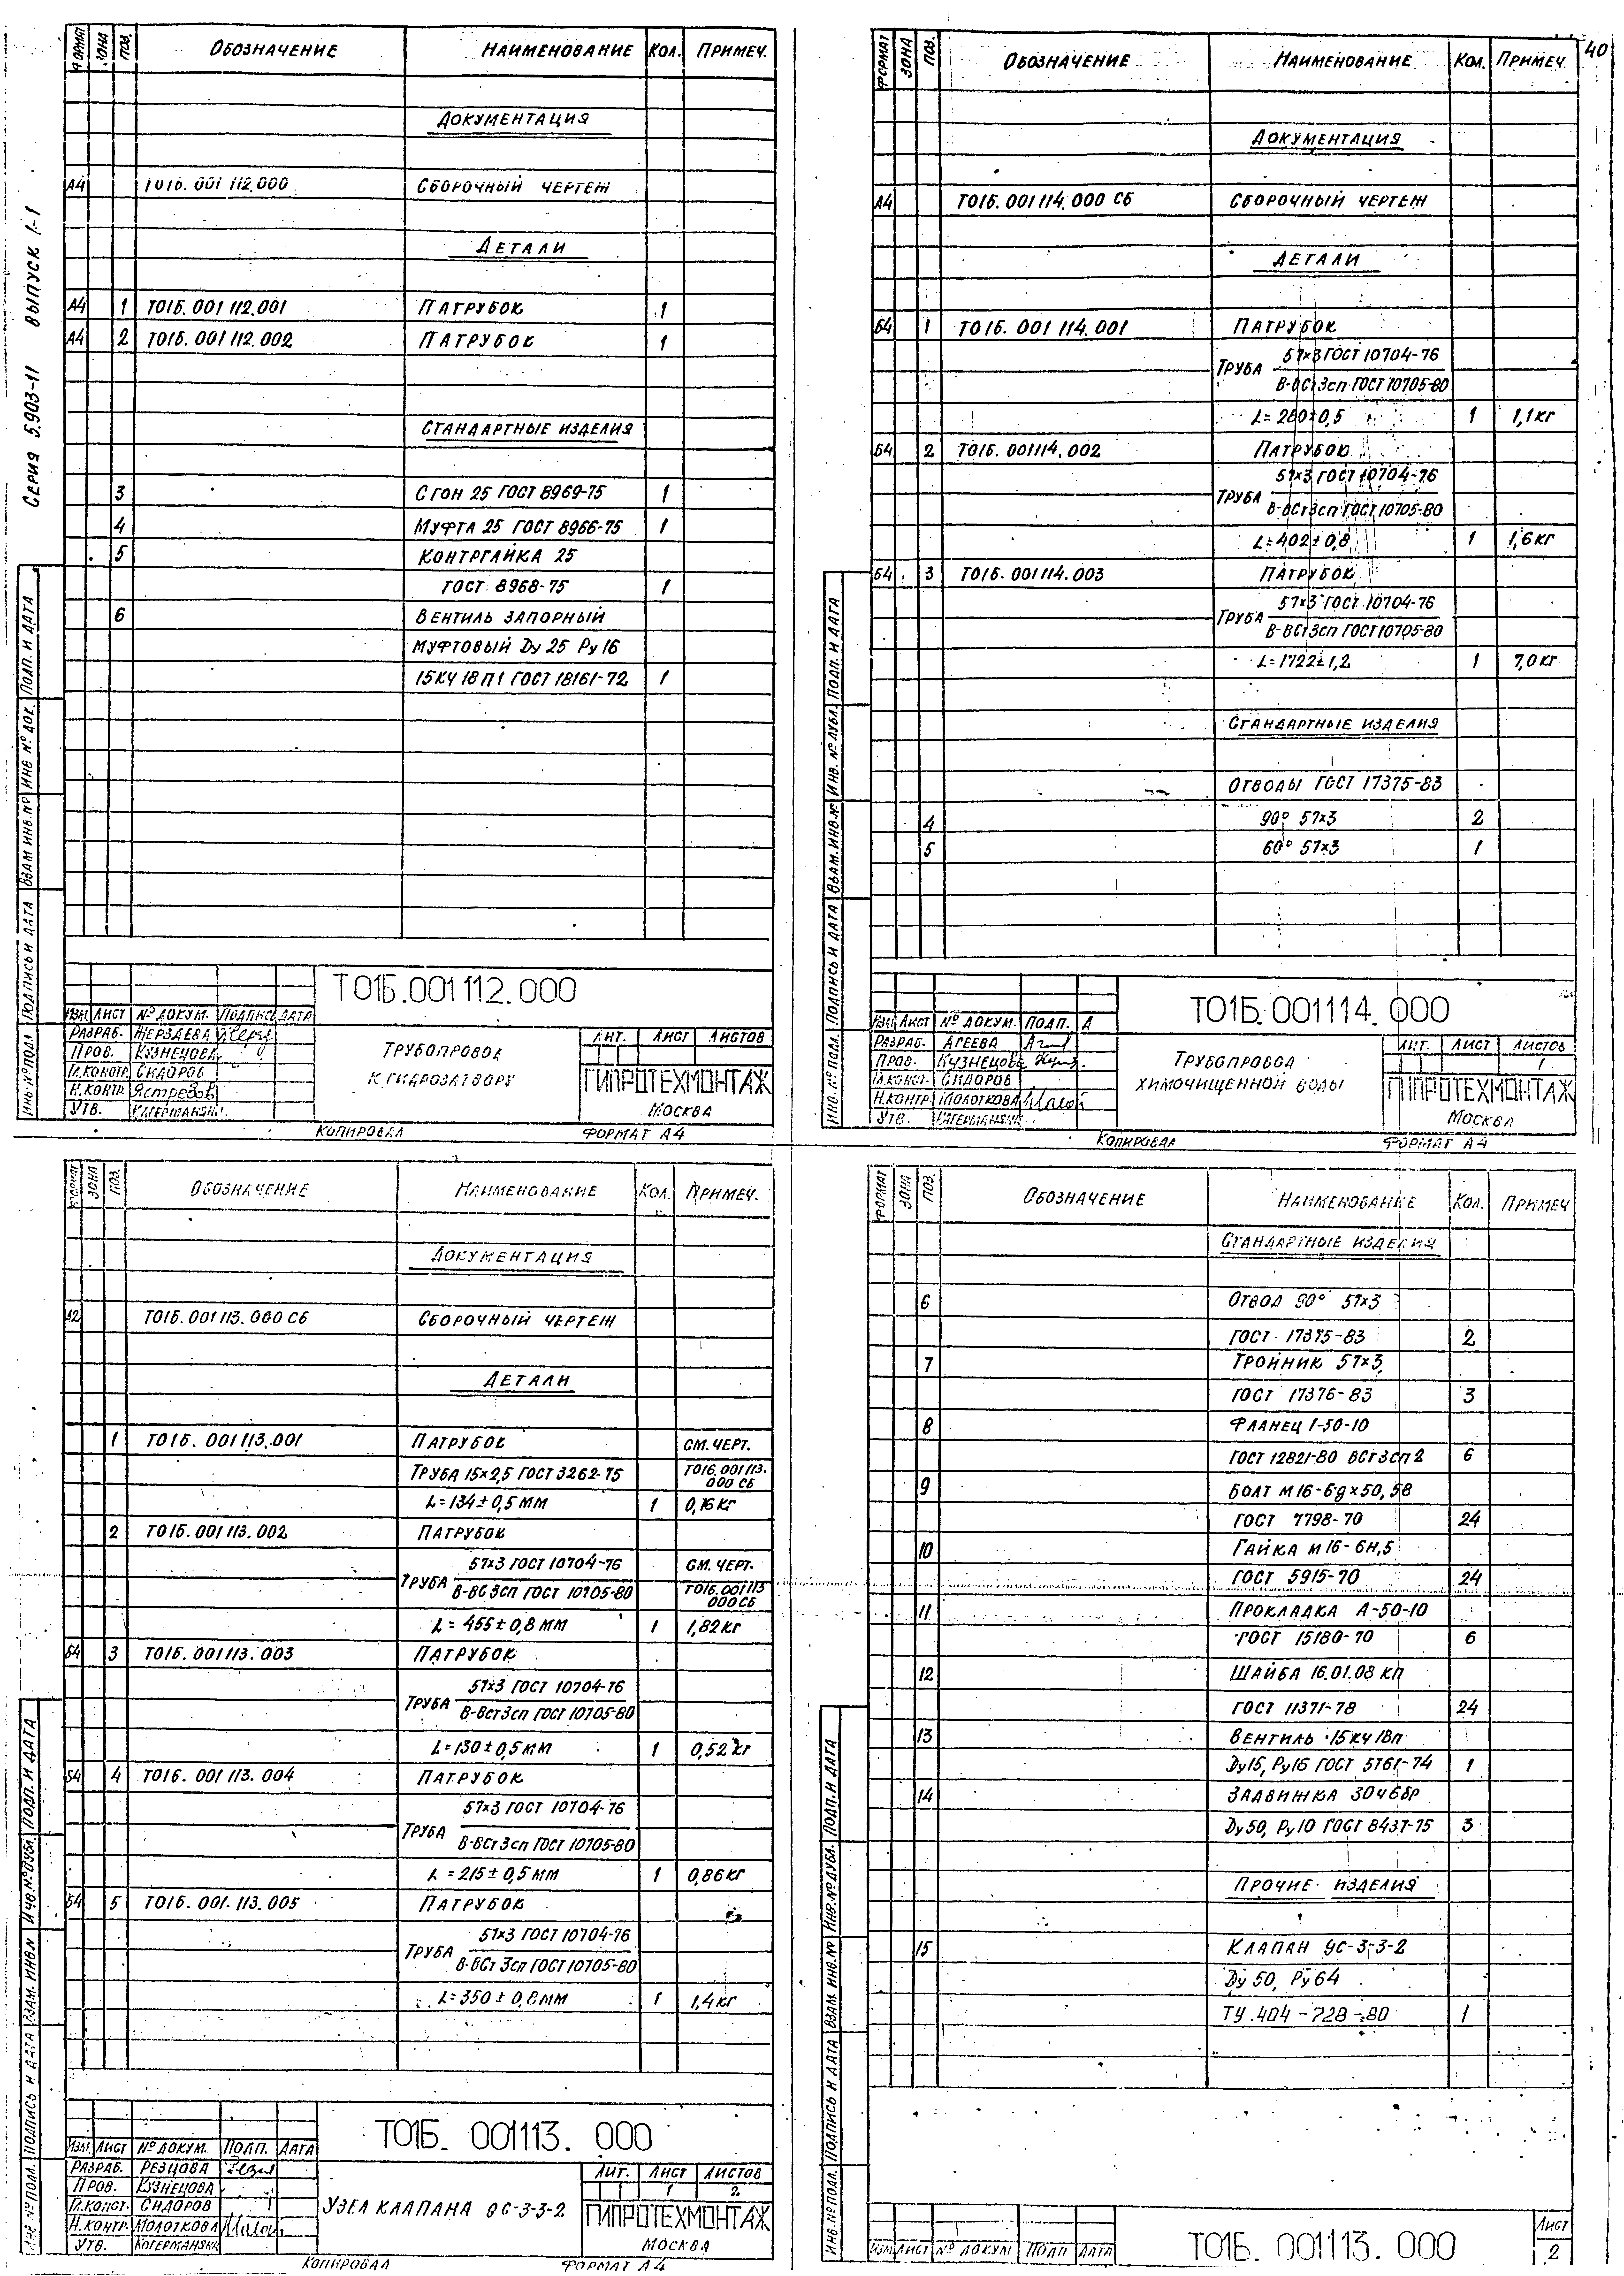 40
Серия 5.903-11 выпуск 1-1
Формат Зона Поз. Обозначение Наименование Кол. Примеч.
Документация
А4 Т01Б.001 112.000 Сборочный чертеж
Детали
А4 1 Т01Б.001 112.001 Патрубок 1
А4 2 Т01Б.001 112.002 Патрубок 1
Стандартные изделия
3 Сгон 25 ГОСТ 8969-75 1
4 Муфта 25 ГОСТ 8966-75 1
5 Контргайка 25
ГОСТ 8968-75 1
6 Вентиль запорный
муфтовый Dу 25 Ру 16
15КЧ 18П1 ГОСТ 18161-72 1
Инв № подл Подпись и дата Взам инв. № Инв № док. Подп. и дата
Т01Б.001 112.000
Изм. Лист № докум. Подпись Дата
Разраб. Жерздева
Пров. Кузнецова
Гл.констр. Сидоров
Н.контр. Ястребов
Утв. Когерманский
Трубопровод
к гидрозатвору
Лит. Лист Листов
ГИПРОТЕХМОНТАЖ
Москва
Копировал Формат А4
Формат Зона Поз. Обозначение Наименование Кол. Примеч
Документация
А4 Т01Б.001 114.000 СБ Сборочный чертеж
Детали
Б4 1 Т01Б.001 114.001 Патрубок
Труба 57×3 ГОСТ 10704-76
В-ВСт3сп ГОСТ 10705-80
L=280±0,5 1 1,1кг
Б4 2 Т01Б.001114.002 Патрубок
Труба 57×3 ГОСТ 10704-76
В-ВСт3сп ГОСТ 10705-80
L=402±0,8 1 1,6кг
Б4 3 Т01Б.001114.003 Патрубок
Труба 57×3 ГОСТ 10704-76
В-ВСт3сп ГОСТ 10705-80
L=1722±1,2 1 7,0кг
Стандартные изделия
Отводы ГОСТ 17375-83
4 90° 57×3 2
5 60° 57×3 1
Инв. № подл. Подпись и дата Взам. инв.№ Инв. № дубл. Подп. и дата
Т01Б.001114.000
Изм Лист № докум. Подп. Д
Разраб. Агеева
Пров. Кузнецова
Гл.конст. Сидоров
Н.контр. Молоткова
Утв. Когерманский
Трубопровод
химочищенной воды
Лит. Лист Листов
1
ГИПРОТЕХМОНТАЖ
Москва
Копировал Формат А4
Формат Зона Поз. Обозначение Наименование Кол. Примеч.
Документация
А2 Т01Б.001 113.000 СБ Сборочный чертеж
Детали
1 Т01Б.001 113.001 Патрубок см. черт.
Труба 15×2,5 ГОСТ 3262-75 Т01Б.001113.
000 СБ
L=134±0,5 мм 1 0,16кг
2 Т01Б.001 113.002 Патрубок
Труба 57×3 ГОСТ 10704-76 см. черт.
В-ВС 3сп ГОСТ 10705-80 Т01Б.001113
000СБ
L=455±0,8 мм 1 1,82кг
Б4 3 Т01Б.001113.003 Патрубок
Труба 57×3 ГОСТ 10704-76
В-ВСт3сп ГОСТ 10705-80
L=130±0,5мм 1 0,52кг
Б4 4 Т01Б.001 113.004 Патрубок
Труба 57×3 ГОСТ 10704-76
В-ВСт3сп ГОСТ 10705-80
L=215±0,5мм 1 0,86кг
Б4 5 Т01Б.001.113.005 Патрубок
Труба 57×3 ГОСТ 10704-76
В-ВСт 3сп ГОСТ 10705-80
L=350±0,8мм 1 1,4кг
Инв № подл. Подпись и дата Взам. инв.№ Инв №дубл. Подп. и дата
Т01Б.001113.000
Изм. Лист № докум. Подп. Дата
Разраб. Резцова
Пров. Кузнецова
Гл.конст. Сидоров
Н.контр. Молоткова
Утв. Когерманский
Узел клапана 9с-3-3-2
Лит. Лист Листов
1 2
ГИПРОТЕХМОНТАЖ
Москва
Копировал Формат А4
Формат Зона Поз. Обозначение Наименование Кол. Примеч
Стандартные изделия
6 Отвод 90° 57×3
ГОСТ 17375-83 2
7 Тройник 57×3
ГОСТ 17376-83 3
8 Фланец 1-50-10
ГОСТ 12821-80 ВСт3сп2 6
9 Болт М16-6g×50,58
ГОСТ 7798-70 24
10 Гайка М16-6Н,5
ГОСТ 5915-70 24
11 Прокладка А-50-10
ГОСТ 15180-70 6
12 Шайба 16.01.08 кп
ГОСТ 11371-78 24
13 Вентиль 15кч18п
Dу15, Ру16 ГОСТ 5761-74 1
14 Задвижка 30ч6бр
Dу50, Ру10 ГОСТ 8437-75 3
Прочие изделия
15 Клапан 9с-3-3-2
Dу 50, Ру64
ТУ.404-728-80 1
Инв. № подл. Подпись и дата Взам. инв.№ Инв.№дубл. Подп. и дата
Изм Лист № докум Подп Дата
Т01Б.001113.000
Лист
2